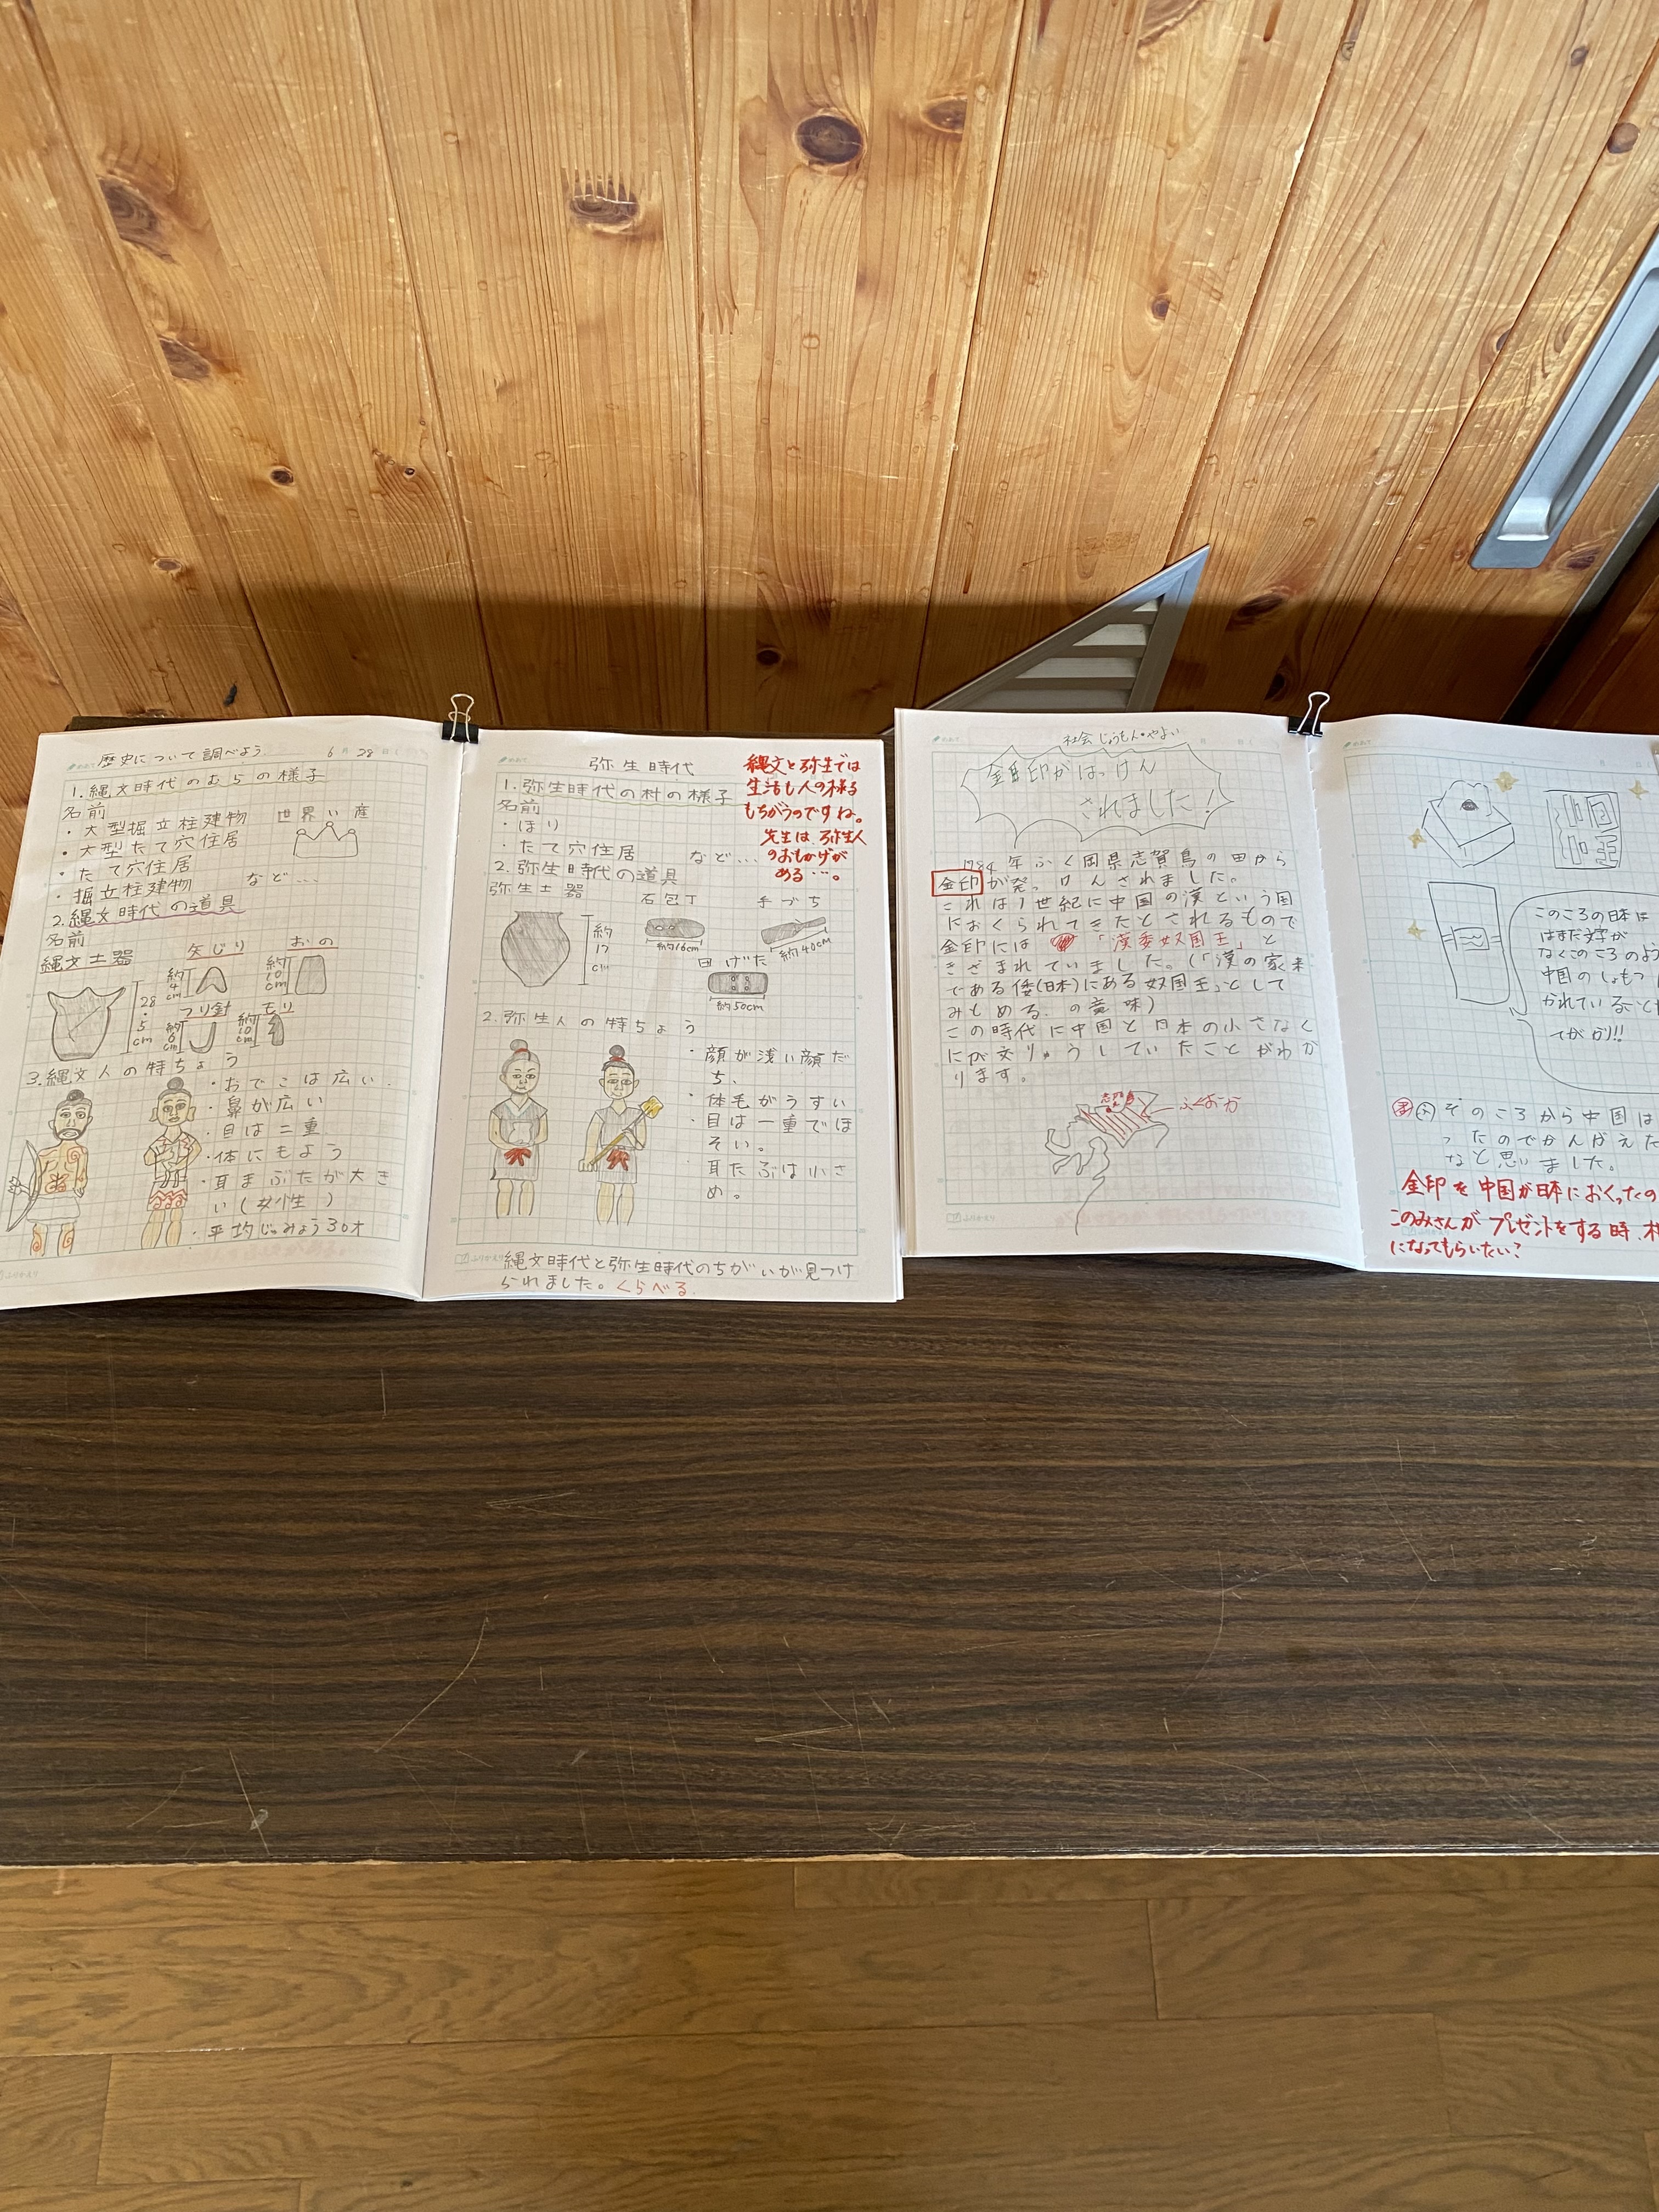 歴史について調べよう 6月28日
1.縄文時代のむらの様子
名前
・大型掘立柱建物
世界い産
・大型たて穴住居
・たて穴住居
・掘立柱建物 など…
2.縄文時代の道具
名前
縄文土器
矢じり
おの
28.5cm
約4cm
約10cm
つり針
モリ
約6cm
約10cm
3.縄文人の特ちょう
・おでこは広い.
・鼻が広い
・目は二重
・体にもよう
・耳まぶたが大き
い(女性)
・平均じゅみょう30才
弥生時代
1.弥生時代の村の様子
名前
・ほり
・たて穴住居 など…
2.弥生時代の道具
弥生土器
石包丁
手づち
約17cm
約16cm
約40cm
田げた
約50cm
2.弥生人の特ちょう
・顔が浅い顔だ
ち、
・体毛がうすい
・目は一重でほ
そい。
・耳たぶは小さ
め。
ふりかえり
縄文時代と弥生時代のちがいが見つけ
られました。くらべる
縄文と弥生では
生活も人の様子
もちがうのですね。
先生は、弥生人
のおもかげが
ある…。
社会じょうもん・やよい
金印がはっけん
されました!
1784年ふく岡県志賀島の田から
金印が発っけんされました。
これは1世紀に中国の漢という国
におくられてきたとされるもので
金印には「漢委奴国王」と
きざまれていました。(「漢の家来
である倭(日本)にある奴国王」として
みとめる.の意味)
この時代に中国と日本の小さなく
にが交りゅうしていたことがわか
ります。
ふくおか
ふりかえり
このころの日本に
はまだ文字が
なくこのころのよう
中国のしょもつ
かれていること
てがかり!!
そのころから中国は
ったのでかんがえた
なと思いました。
金印を中国が日本におくったの
このみさんがプレゼントをする時、相
になってもらいたい?